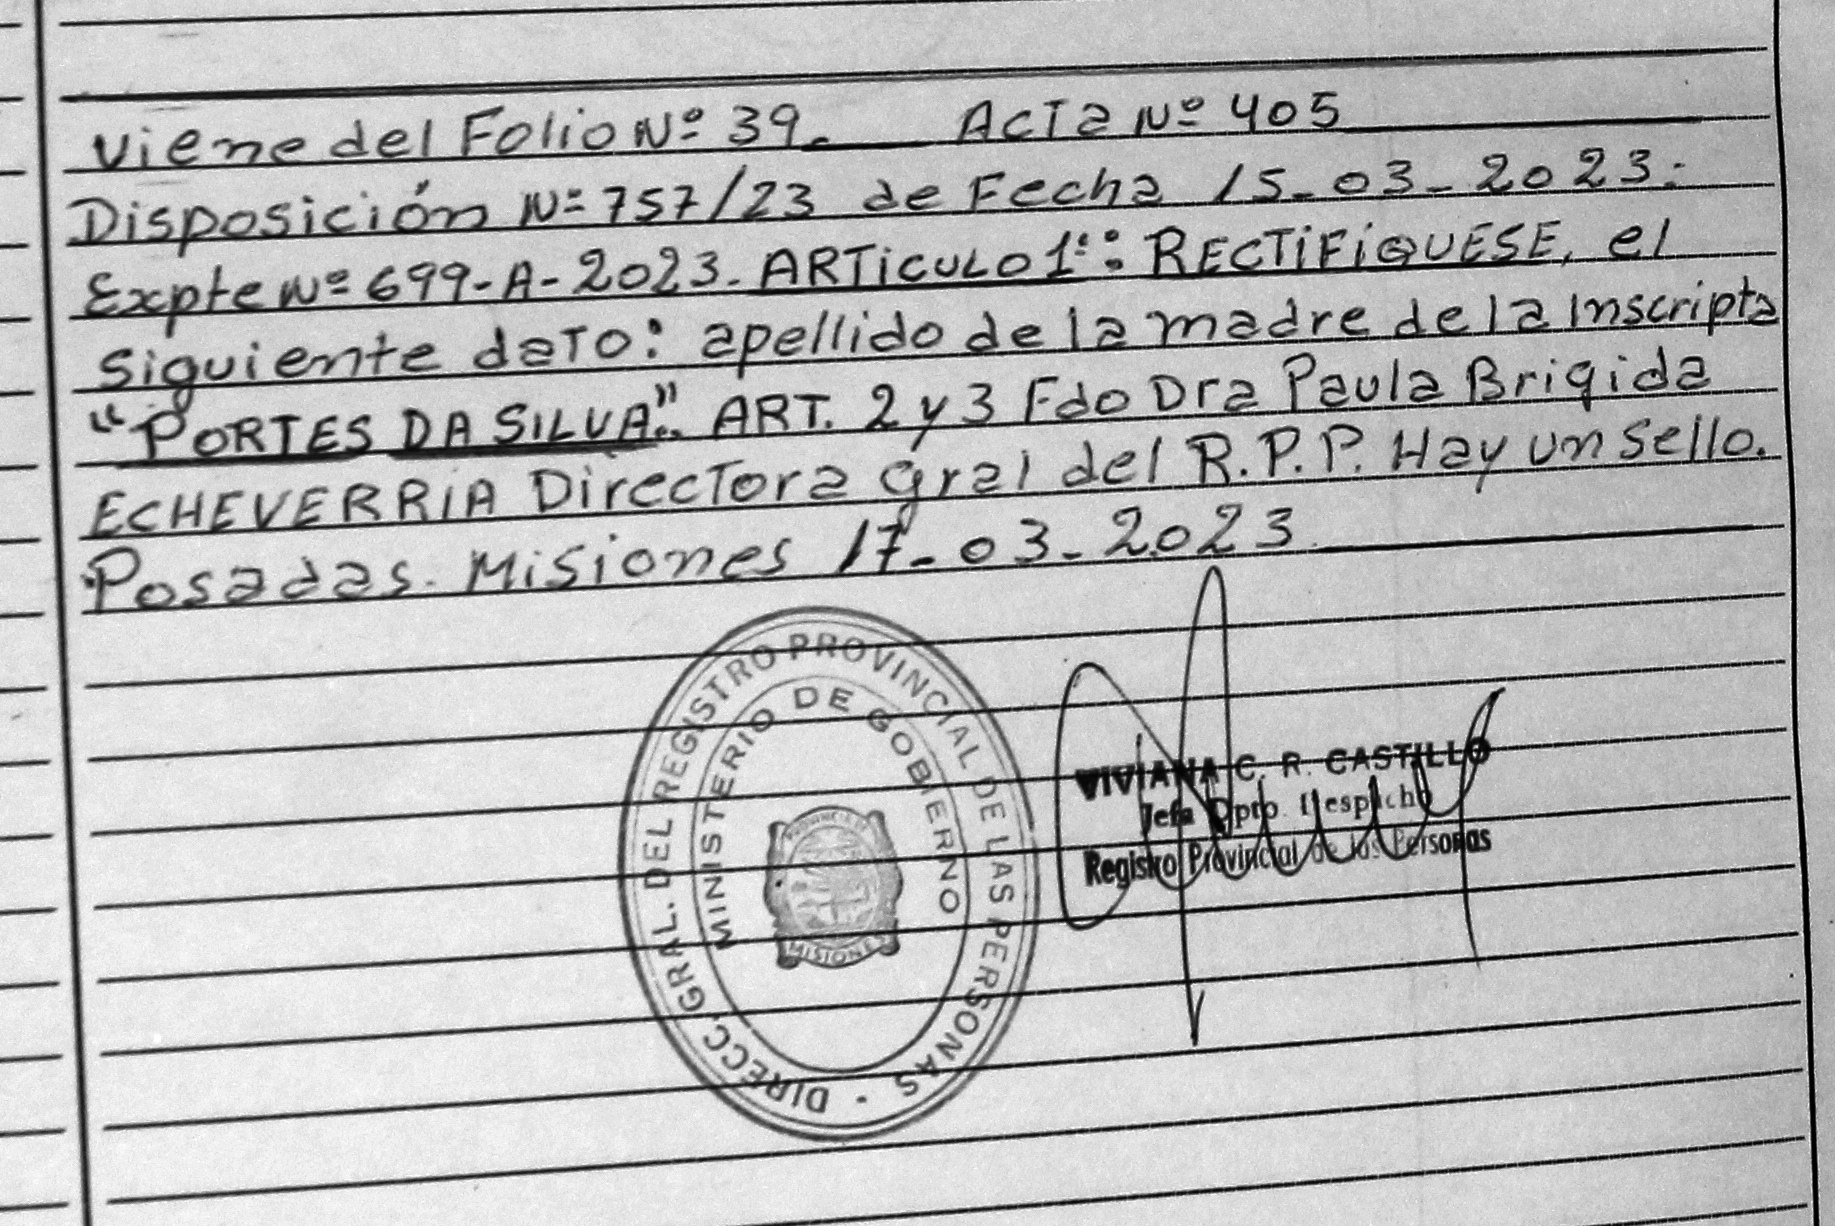 Viene del Folio Nº 39. Acta Nº 405
Disposición Nº 757/23 de Fecha 15-03-2023:
Expte Nº 699-A-2023. ARTICULO 1º: RECTIFIQUESE, el
siguiente dato: apellido de la madre de la inscripta
"PORTES DA SILVA". ART. 2 y 3 Fdo Dra Paula Brigida
ECHEVERRIA Directora Gral del R.P.P. Hay un sello.
Posadas. Misiones 17-03-2023
DIRECC. GRAL. DEL REGISTRO PROVINCIAL DE LAS PERSONAS
MINISTERIO DE GOBIERNO
PROVINCIA DE
MISIONES
VIVIANA C. R. CASTILLO
Jefa Dpto Despacho
Registro Provincial de las Personas